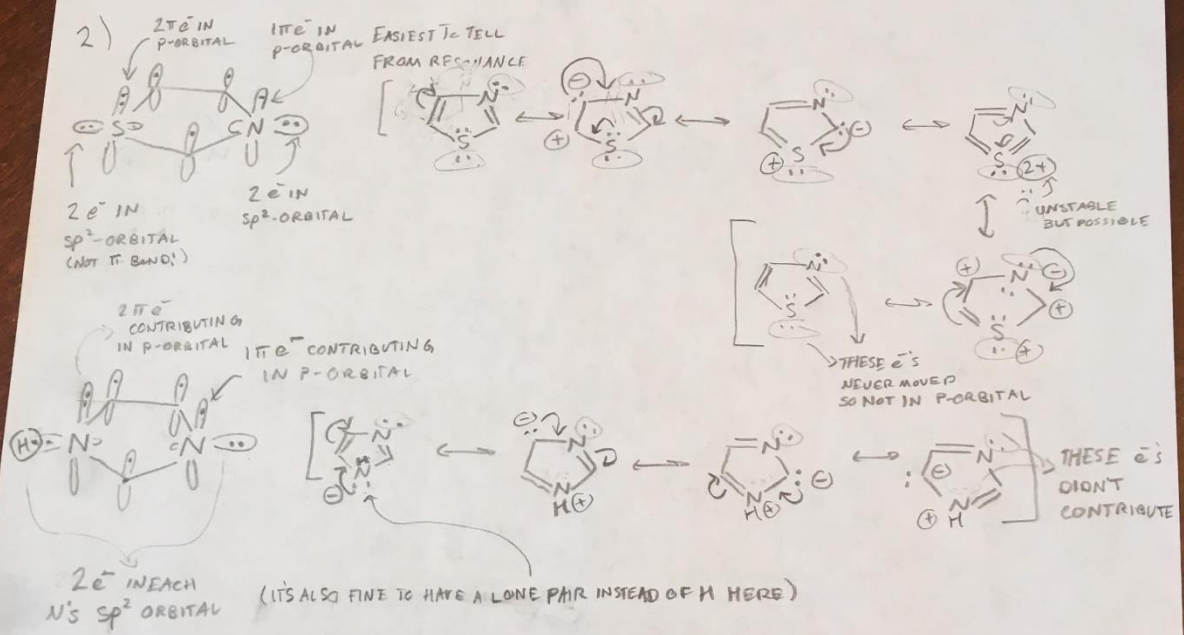 2)
2πe⁻ IN
P-ORBITAL
1πe⁻ IN
P-ORBITAL
EASIEST TO TELL
FROM RESONANCE
S
N
2 e⁻ IN
SP²-ORBITAL
(NOT π BOND!)
2 e⁻ IN
SP²-ORBITAL
N
S
⊖
N
⊕
S
N
⊖
⊕
S
N
S
2+
UNSTABLE
BUT POSSIBLE
N
S
⊕
N
⊖
⊕
S
⊕
THESE e⁻'s
NEVER MOVED
SO NOT IN P-ORBITAL
2πe⁻
CONTRIBUTING
IN P-ORBITAL
1πe⁻ CONTRIBUTING
IN P-ORBITAL
H
N
N
2e⁻ IN EACH
N'S SP² ORBITAL
N
N
⊖
⊖
N
N
H⊕
N
⊖
N
H⊕
N
⊖
N
⊕ H
THESE e⁻'s
DIDN'T
CONTRIBUTE
(IT'S ALSO FINE TO HAVE A LONE PAIR INSTEAD OF H HERE)